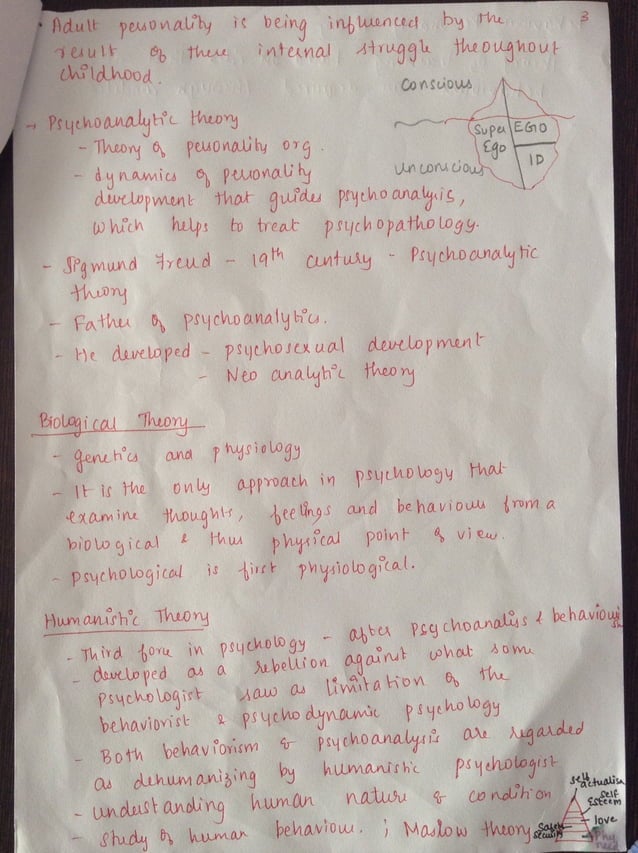 - Adult personality is being influenced by the 3
result of these internal struggle theoughout
childhood.
Conscious
Super Ego
EGO
ID
Unconscious
→ Psychoanalytic theory
- Theory of personality org.
- dynamics of personality
development that guides psychoanalysis,
which helps to treat psychopathology.
- Sigmund Freud - 19th century - Psychoanalytic
theory
- Father of psychoanalytics.
- He developed - psychosexual development
- Neo analytic theory
Biological Theory
- genetics and physiology
- It is the only approach in psychology that
examine thoughts, feelings and behaviour from a
biological & thus physical point of view.
- psychological is first physiological.
Humanistic Theory
- Third force in psychology - after psychoanaliss & behaviouri
sm
- developed as a rebellion against what some
psychologist saw as limitation of the
behaviorist & psychodynamic psychology
- Both behaviorism & psychoanalysis are regarded
as dehumanizing by humanistic psychologist
- understanding human nature & condition
- study of human behaviour. ; Maslow theory
self
actualisn
self
Esteem
love
Safety
security
Phy
need